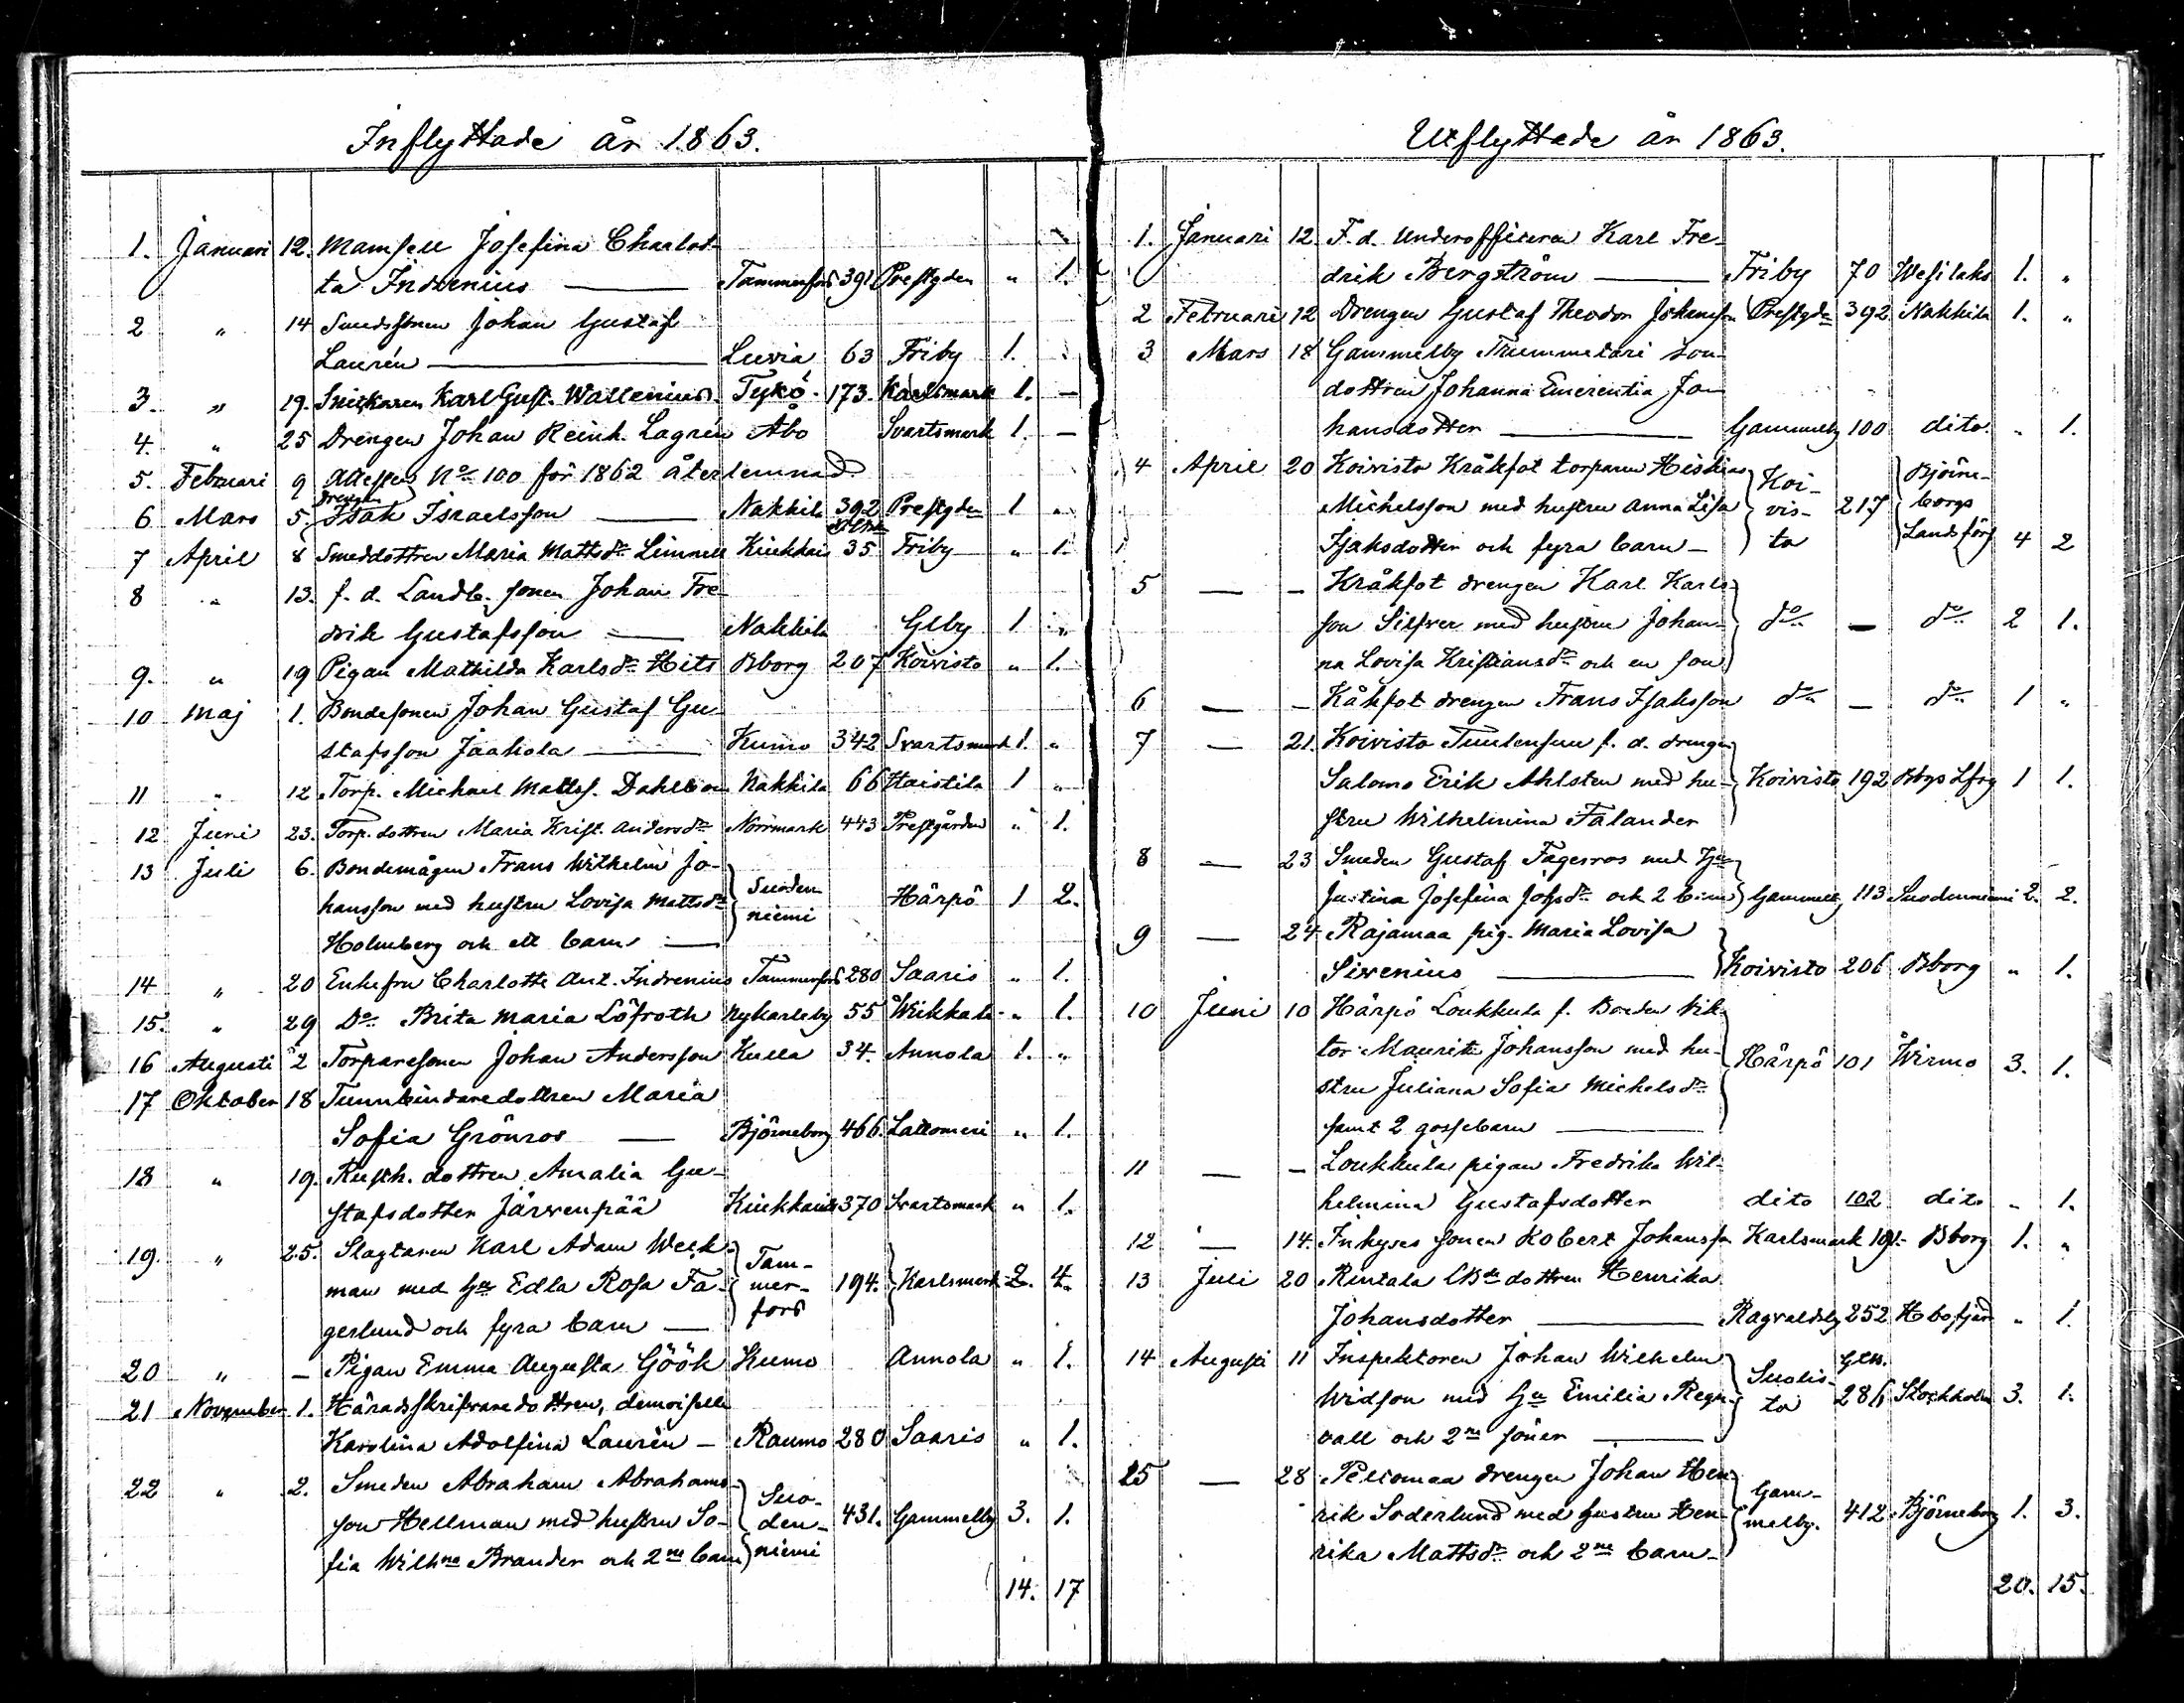 Inflyttade år 1863.
1. Januari 12. Mamsell Josefina Charlot-
ta Indrenius — Tammerfors 391 Prestgden „ 1.
2 „ 14 Smedssonen Johan Gustaf
Laurén — Luvia 63 Friby 1.
3. „ 19. Snickaren Karl Gust. Wallenius. Tykö. 173. Karlsmark 1. —
4. „ 25 Drengen Johan Reinh. Lagrén Åbo Svartsmark 1. —
5. Februari 9 Attesten No 100 för 1862 återlemnad.
6 Mars 5. Drengen Isak Israelsson — Nakkila 392 Prestgden 1 „
7 April 8 Smeddottren Maria Mattsdr Limnell Kiukkais 35 Friby „ 1.
8 „ 13. f. d. Landb. sonen Johan Fre-
drik Gustafsson — Nakkila Glby 1 „
9. „ 19 Pigan Mathilda Karlsdr Hits Bborg 207 Koivisto „ 1.
10 Maj 1. Bondesonen Johan Gustaf Gu-
stafsson Jaakola — Kumo 342 Svartsmark 1. „
11 „ 12 Torp. Michael Mattss. Dahlbom Nakkila 66 Haistila 1 „
12 Juni 23. Torp. dottren Maria Krist. Andersdr Norrmark 443 Prestgården „ 1.
13 Juli 6. Bondemågen Frans Wilhelm Jo-
hansson med hustru Lovisa Mattsdr Suoden niemi Härpö 1 2.
Holmberg och ett barn —
14 „ 20 Enkefru Charlotte Ant. Indrenius Tammerfors 280 Saaris „ 1.
15. „ 29 Do Brita Maria Löfroth Nykarleby 55 Wiikkala „ 1.
16 Augusti 2 Torparesonen Johan Andersson Kulla 34. Annola 1. „
17 Oktober 18 Tunnbindaredottren Maria
Sofia Grönros — Björneborg 466. Lattomeri „ 1.
18 „ 19. Rusth. dottren Amalia Gu-
stafsdotter Järvenpää Kiukkais 370 Svartsmark „ 1.
19. „ 25. Slagtaren Karl Adam Weck-
man med Hu Edla Rosa Fa- Tam- mer- fors 194. Karlsmark 2. 4.
gerlund och fyra barn —
20 „ — Pigan Emma Augusta Göök Kumo Annola „ 1.
21 November 1. Häradsskrifvaredottren, demoiselle
Karolina Adolfina Laurén — Raumo 280 Saaris „ 1.
22 „ 2. Smeden Abraham Abrahams-
son Hellman med hustru So- Suo- den- niemi 431. Gammelby 3. 1.
fia Wilhna Brander och 2ne barn
14. 17
Utflyttade år 1863.
1. Januari 12. F. d. Underofficeren Karl Fre-
drik Bergström — Friby 70 Wesilaks 1. „
2 Februari 12 Drengen Gustaf Theodor Johansson Prestgdn 392 Nakkila 1. „
3 Mars 18 Gammelby Trummetari son-
dottren Johanna Emerentia Jo-
hansdotter — Gammelby 100 dito. „ 1.
4 April 20 Koivisto Kråkfot torparen Hiskias
Michelsson med hustru Anna Lisa Koi- vis- to 217 Björne- borgs Landsförs
Isaksdotter och fyra barn — 4 2
5 — — Kråkfot drengen Karl Karls-
son Silfver med hustru Johan- do — do 2 1.
na Lovisa Kristiansdr och en son
6 — — Kåkfot drengen Frans Isaksson do — do 1 „
7 — 21. Koivisto Tuulensuu f. d. drengen
Salomo Erik Ahlsten med hu- Koivisto 192 Bbgs Lfrg 1 1.
stru Wilhelmina Falander
8 — 23 Smeden Gustaf Fagerros med Hu
Justina Josefina Josdr och 2 barn Gammelby 113 Suodenniemi 2. 2.
9 — 24 Rajamaa pig. Maria Lovisa
Sirenius — Koivisto 206 Bborg „ 1.
10 Juni 10 Härpö Loukkula f. Bonden Vik-
tor Maurits Johansson med hu- Härpö 101 Wirmo 3. 1.
stru Juliana Sofia Michelsdr
samt 2 gossebarn —
11 — — Loukkula pigan Fredrika Wil-
helmina Gustafsdotter dito 102 dito „ 1.
12 — 14. Inhyses sonen Robert Johansson Karlsmark 191. Bborg 1. „
13 Juli 20 Rintala LBde dottren Henrika
Johansdotter — Ragvaldsby 252 Hbofjärd „ 1.
14 Augusti 11 Inspektoren Johan Wilhelm
Widson med Hu Emilia Regn- Suolis- to 286 Stockholm 3. 1.
vall och 2ne söner —
25 — 28 Peltomaa drengen Johan Hen-
rik Söderlund med hustru Hen- Gam- melby. 412 Björneborg 1. 3.
rika Mattsdr och 2ne barn —
20. 15.